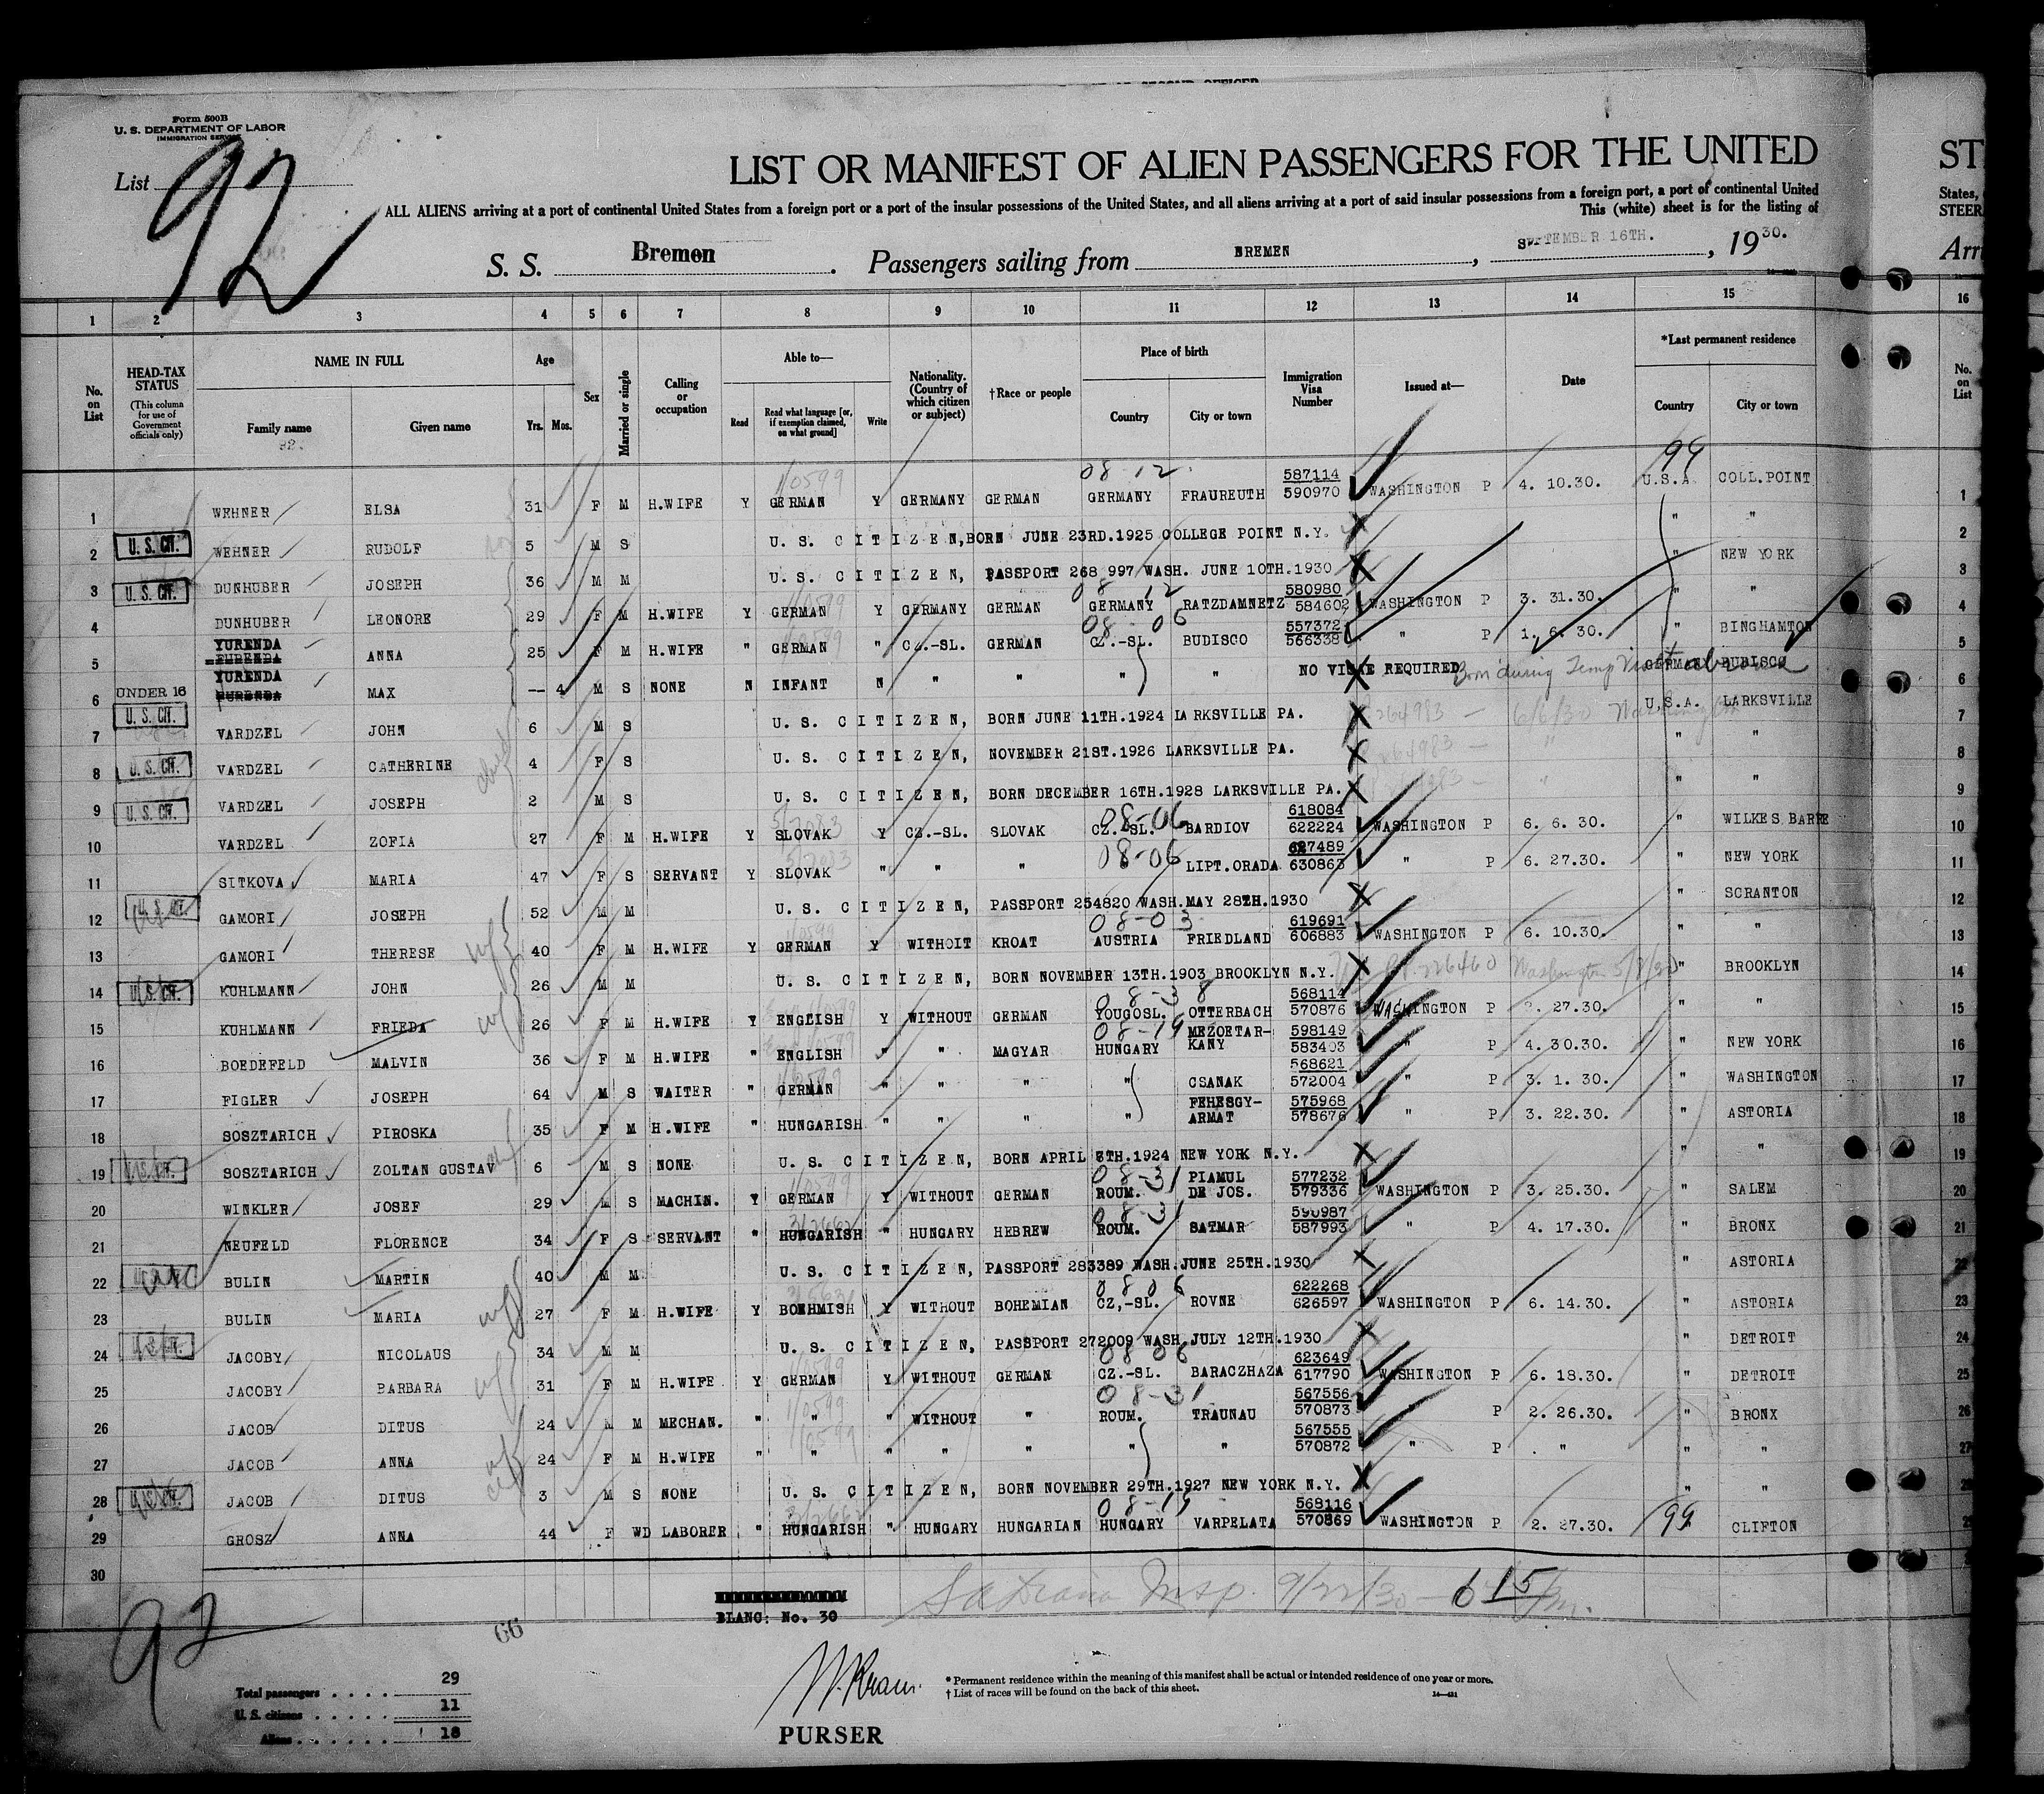 Form 500B
U. S. DEPARTMENT OF LABOR
IMMIGRATION SERVICE
List 92
LIST OR MANIFEST OF ALIEN PASSENGERS FOR THE UNITED
ALL ALIENS arriving at a port of continental United States from a foreign port or a port of the insular possessions of the United States, and all aliens arriving at a port of said insular possessions from a foreign port, a port of continental United
This (white) sheet is for the listing of
S. S. Bremen. Passengers sailing from BREMEN, SEPTEMBER 16TH., 1930.
ST
States,
STEER
Arri
1 2 3 4 5 6 7 8 9 10 11 12 13 14 15 16
No. on List
HEAD-TAX STATUS
(This column for use of Government officials only)
NAME IN FULL
Family name
Given name
Age
Yrs. Mos.
Sex
Married or single
Calling or occupation
Able to—
Read
Read what language [or, if exemption claimed, on what ground]
Write
Nationality. (Country of which citizen or subject)
†Race or people
Place of birth
Country
City or town
Immigration Visa Number
Issued at—
Date
*Last permanent residence
Country
City or town
No. on List
92.
1 WEHNER ELSA 31 F M H.WIFE Y GERMAN 1/0599 Y GERMANY GERMAN GERMANY 08-12 FRAUREUTH 587114 590970 WASHINGTON P 4. 10.30. 99 U.S.A. COLL.POINT 1
2 U. S. CIT. WEHNER RUDOLF 5 M S U. S. CITIZEN, BORN JUNE 23RD.1925 COLLEGE POINT N.Y. " " 2
3 U. S. CIT. DUNHUBER JOSEPH 36 M M U. S. CITIZEN, PASSPORT 268 997 WASH. JUNE 10TH.1930 " NEW YORK 3
4 DUNHUBER LEONORE 29 F M H.WIFE Y GERMAN 1/0599 Y GERMANY GERMAN GERMANY 08 12 RATZDAMNETZ 580980 584602 WASHINGTON P 3. 31.30. " " 4
5 YURENDA ANNA 25 F M H.WIFE " GERMAN 1/0599 " CZ.-SL. GERMAN CZ.-SL. 08-06 BUDISCO 557372 566338 " P 1. 6. 30. " BINGHAMTON 5
6 UNDER 16 YURENDA MAX -- 4 M S NONE N INFANT N " " " " NO VISAE REQUIRED Born during Temp Visit abroad GERMANY BUBISCO 6
7 U. S. CIT. VARDZEL JOHN 6 M S U. S. CITIZEN, BORN JUNE 11TH.1924 LARKSVILLE PA. 264983 — 6/6/30 Washington U.S.A. LARKSVILLE 7
8 U. S. CIT. VARDZEL CATHERINE 4 F S U. S. CITIZEN, NOVEMBER 21ST.1926 LARKSVILLE PA. 264983 — " " " 8
9 U. S. CIT. VARDZEL JOSEPH 2 M S U. S. CITIZEN, BORN DECEMBER 16TH.1928 LARKSVILLE PA. " " " 9
10 VARDZEL ZOFIA 27 F M H.WIFE Y SLOVAK Y CZ.-SL. SLOVAK CZ.-SL. 08-06 BARDIOV 618084 622224 WASHINGTON P 6. 6. 30. " WILKES BARRE 10
11 SITKOVA MARIA 47 F S SERVANT Y SLOVAK " " " " 08-06 LIPT.ORADA 627489 630863 " P 6. 27.30. " NEW YORK 11
12 U. S. CIT. GAMORI JOSEPH 52 M M U. S. CITIZEN, PASSPORT 254820 WASH.MAY 28TH.1930 " SCRANTON 12
13 GAMORI THERESE 40 F M H.WIFE Y GERMAN 1/0599 Y WITHOIT KROAT AUSTRIA 08-03 FRIEDLAND 619691 606883 WASHINGTON P 6. 10.30. " " 13
14 U. S. CIT. KUHLMANN JOHN 26 M M U. S. CITIZEN, BORN NOVEMBER 13TH.1903 BROOKLYN N.Y. 226460 Washington 5/8/30 " BROOKLYN 14
15 KUHLMANN FRIEDA 26 F M H.WIFE Y ENGLISH Y WITHOUT GERMAN YOUGOSL. 08-38 OTTERBACH 568114 570876 WASHINGTON P 27.30. " " 15
16 BOEDEFELD MALVIN 36 F M H.WIFE " ENGLISH " " MAGYAR HUNGARY 08-19 MEZOETAR-KANY 598149 583403 " P 4. 30.30. " NEW YORK 16
17 FIGLER JOSEPH 64 M S WAITER " GERMAN 1/0599 " " " " CSANAK 568621 572004 " P 3. 1. 30. " WASHINGTON 17
18 SOSZTARICH PIROSKA 35 F M H.WIFE " HUNGARISH " " " " FEHESGY-ARMAT 575968 578676 " P 3. 22.30. " ASTORIA 18
19 U. S. CIT. SOSZTARICH ZOLTAN GUSTAV 6 M S NONE U. S. CITIZEN, BORN APRIL 8TH.1924 NEW YORK N.Y. " " 19
20 WINKLER JOSEF 29 M S MACHIN. Y GERMAN 1/0599 Y WITHOUT GERMAN ROUM. 08-31 PIAMUL DE JOS. 577232 579336 WASHINGTON P 3. 25.30. " SALEM 20
21 NEUFELD FLORENCE 34 F S SERVANT " HUNGARISH " HUNGARY HEBREW ROUM. 08-31 SATMAR 590987 587993 " P 4. 17.30. " BRONX 21
22 BULIN MARTIN 40 M M U. S. CITIZEN, PASSPORT 283389 WASH.JUNE 25TH.1930 " ASTORIA 22
23 BULIN MARIA 27 F M H.WIFE Y BOEHMISH Y WITHOUT BOHEMIAN CZ,-SL. 08 06 ROVNE 622268 626597 WASHINGTON P 6. 14.30. " ASTORIA 23
24 U. S. CIT. JACOBY NICOLAUS 34 M M U. S. CITIZEN, PASSPORT 272009 WASH.JULY 12TH.1930 " DETROIT 24
25 JACOBY BARBARA 31 F M H.WIFE Y GERMAN 1/0599 Y WITHOUT GERMAN CZ.-SL. 08 06 BARACZHAZA 623649 617790 WASHINGTON P 6. 18.30. " DETROIT 25
26 JACOB DITUS 24 M M MECHAN. " " 1/0599 " WITHOUT " ROUM. 08-31 TRAUNAU 567556 570873 " P 2. 26.30. " BRONX 26
27 JACOB ANNA 24 F M H.WIFE " " 1/0599 " " " " " 567555 570872 " P . " " " 27
28 U. S. CIT. JACOB DITUS 3 M S NONE U. S. CITIZEN, BORN NOVEMBER 29TH.1927 NEW YORK N.Y. " " 28
29 GROSZ ANNA 44 F WD LABORER " HUNGARISH " HUNGARY HUNGARIAN HUNGARY 08-19 VARPELATA 568116 570869 WASHINGTON P 2. 27.30. 99 CLIFTON
30
BLANC: No. 30
Insp. 9/22/30 — 6 15
92
66
Total passengers . . . . 29
U. S. citizens . . . . . 11
Aliens . . . . . . 18
PURSER
* Permanent residence within the meaning of this manifest shall be actual or intended residence of one year or more.
† List of races will be found on the back of this sheet.